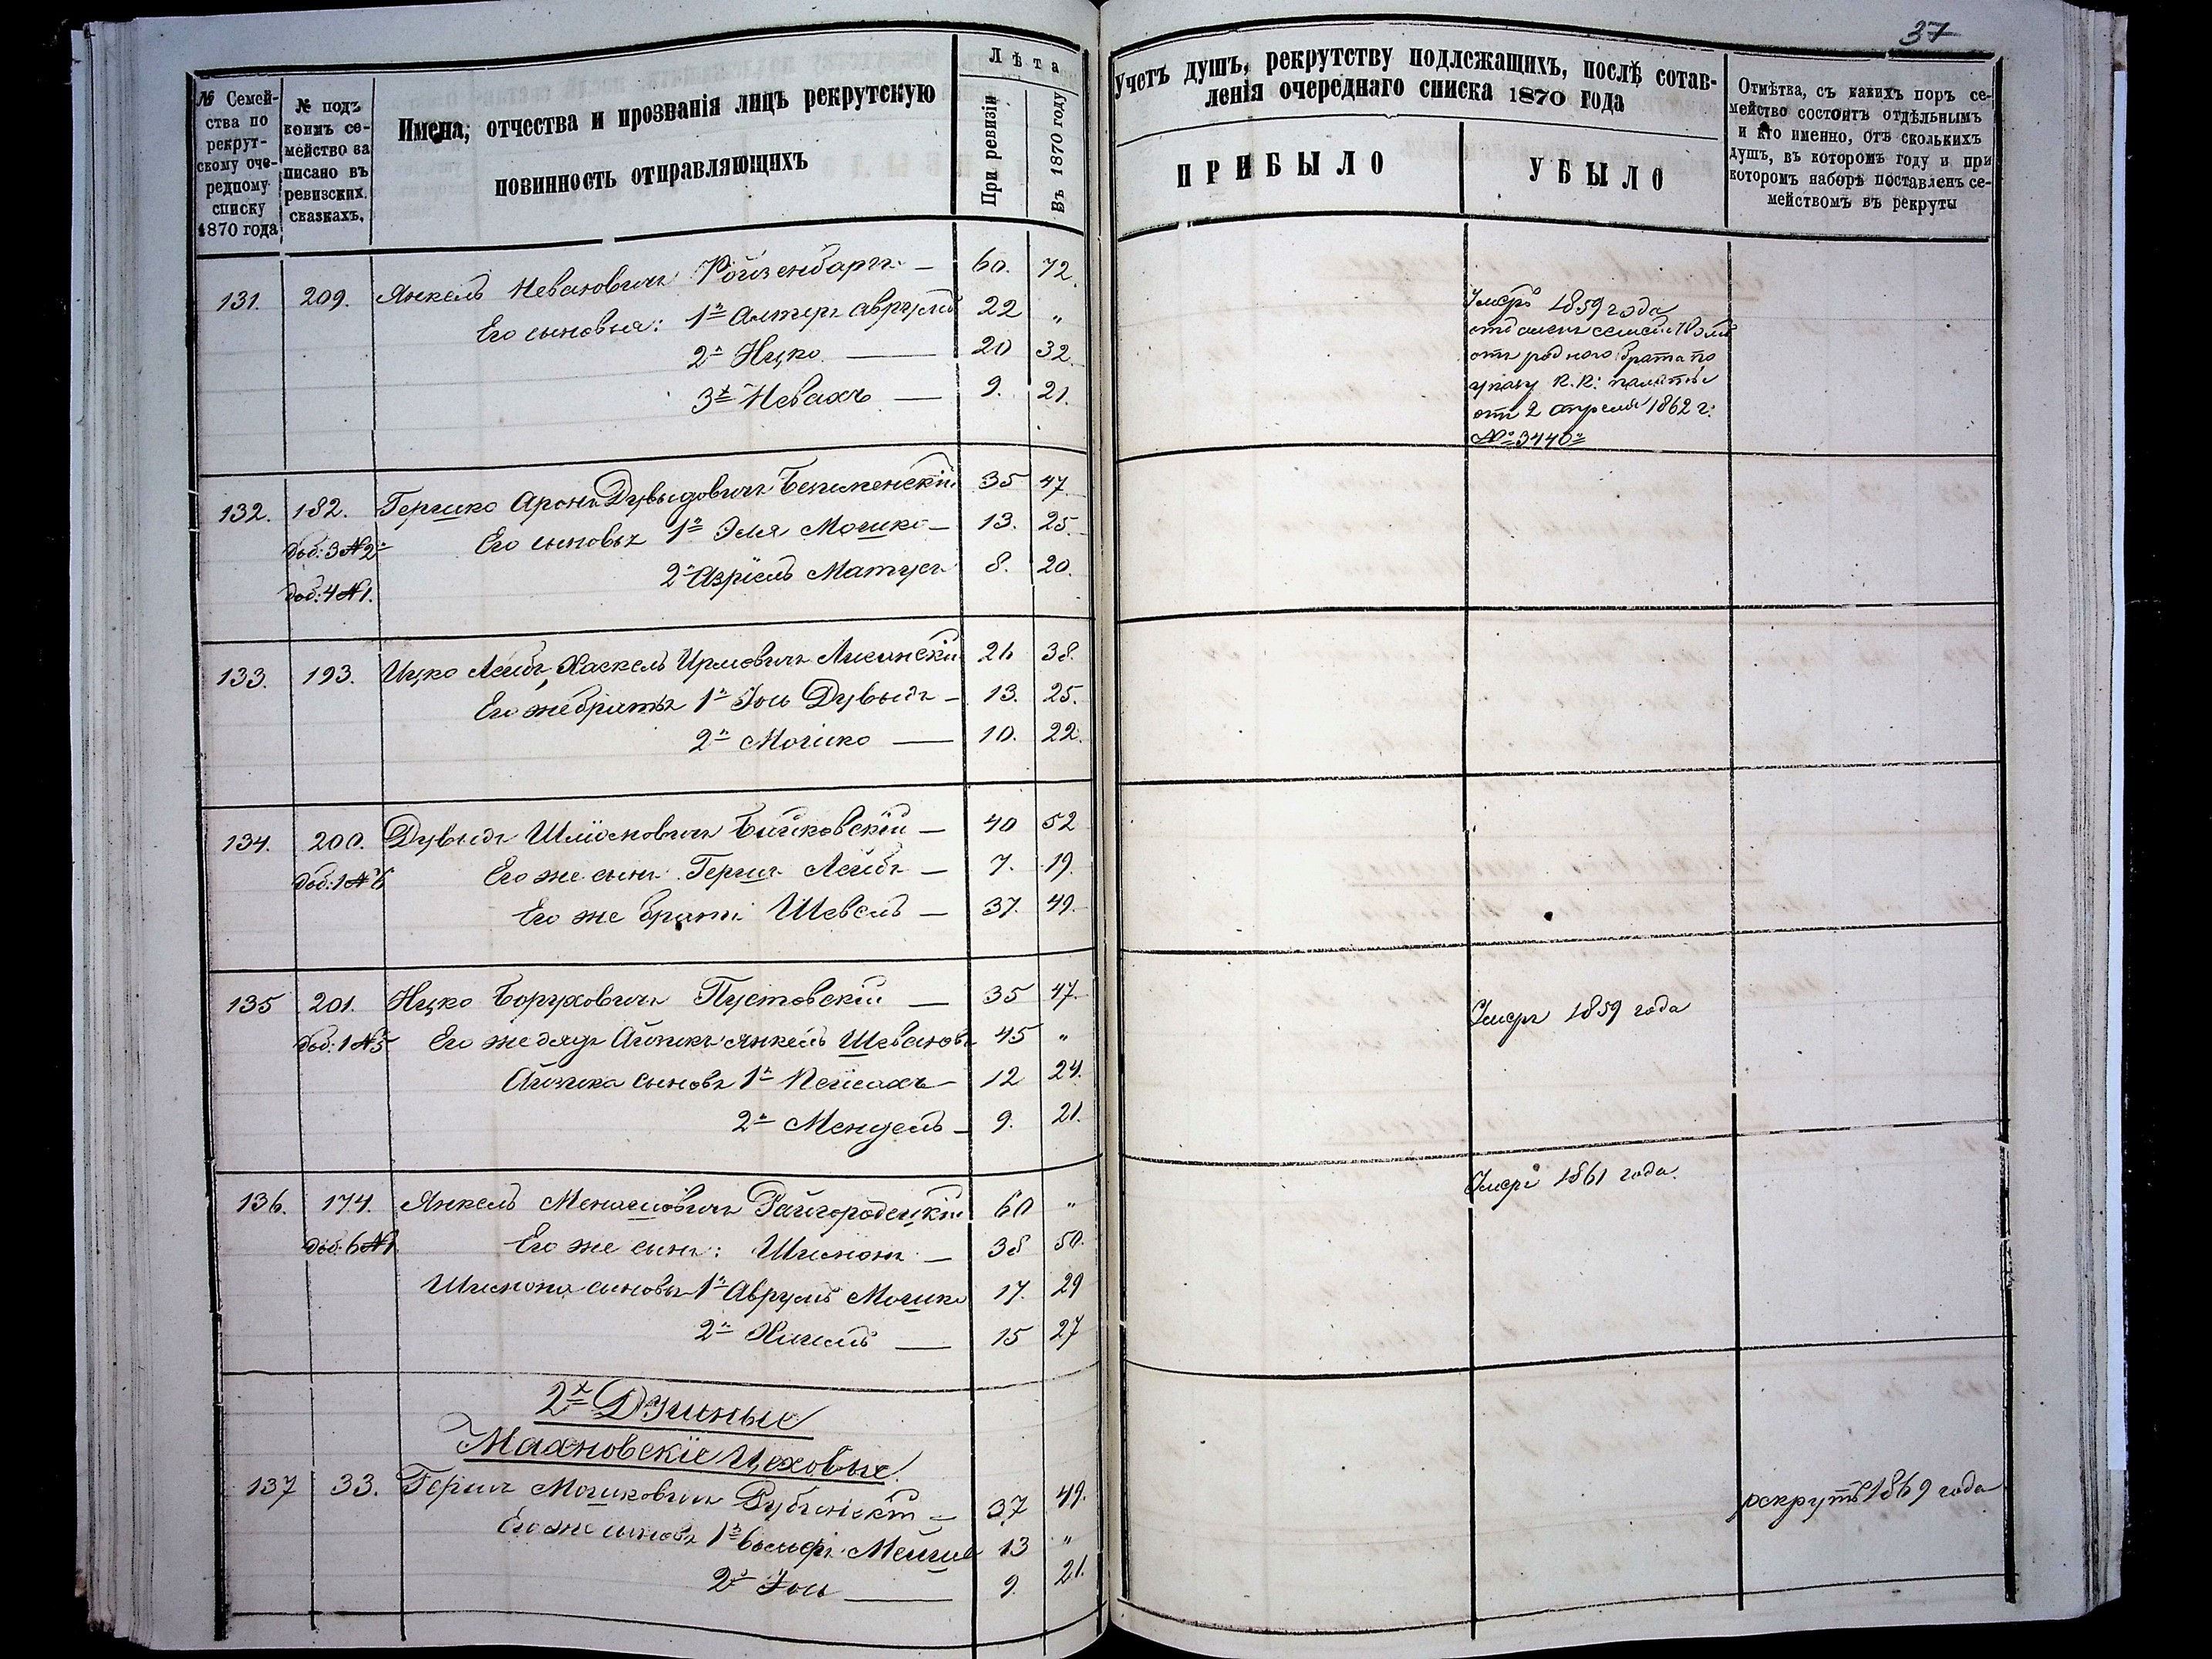 37
№ Семейства по рекрутскому очередному списку 1870 года
№ подъ коимъ семейство записано въ ревизскихъ сказкахъ.
Имена, отчества и прозванія лицъ рекрутскую
повинность отправляющихъ
Лѣта
При ревизіи
Въ 1870 году
Учетъ душъ, рекрутству подлежащихъ, послѣ сотав-
ленія очереднаго списка 1870 года
ПРИБЫЛО
УБЫЛО
Отмѣтка, съ какихъ поръ се-
мейство состоитъ отдѣльнымъ
и кто именно, отъ сколькихъ
душъ, въ которомъ году и при
которомъ наборѣ поставленъ се-
мействомъ въ рекруты
131. 209. Янкель Невахович Ройзенбарг — 60. 72.
Его сыновья: 1й Алтер Аврумъ 22 „
2й Ицко — 20 32.
3й Невахъ — 9. 21.
Умеръ 1859 года
отъ роднаго брата по
указу К. К. палаты
от 2 апреля 1862 г.
№ 3440
132. 182. Гершко Арон Дувыдович 35 47.
доб: 3 № 2 Его сыновья 1й Эля Мошко — 13. 25.
2й Азріель Матус 8. 20.
доб: 4 № 1.
133. 193. Ицко Лейб, Хаскель Ирмович Лисинскій 26 38.
Его же братья 1й Іось Дувыд — 13. 25.
2й Мошко — 10. 22.
134. 200. Дувыд Шліомович Бычковскій — 40 52
доб: 1 № 6 Его же сын Герш Лейб — 7. 19.
Его же брат Шевель — 37. 49.
135 201. Ицко Борухович Пустовскій — 35 47.
доб: 1 № 5 Его же дядя Айзик Янкель 45 „
Умеръ 1859 года
Айзика сыновья 1й Пейсахъ — 12 24.
2й Мендель — 9. 21.
136. 174. Янкель Менашович Райгородецкій 60 „
Умеръ 1861 года.
доб. 6 № 1. Его же сын: Шимон — 38 50.
Шимона сыновья 1й Аврумъ Мошко 17. 29
2й Хаимъ — 15 27
2х Душные
Махновскіе Цеховые.
137 33. Герш Мошкович Рубинскій — 37 49.
Его же сыновья 1й Вольф 13 „
рекрутъ 1869 года
2й Іось — 9. 21.